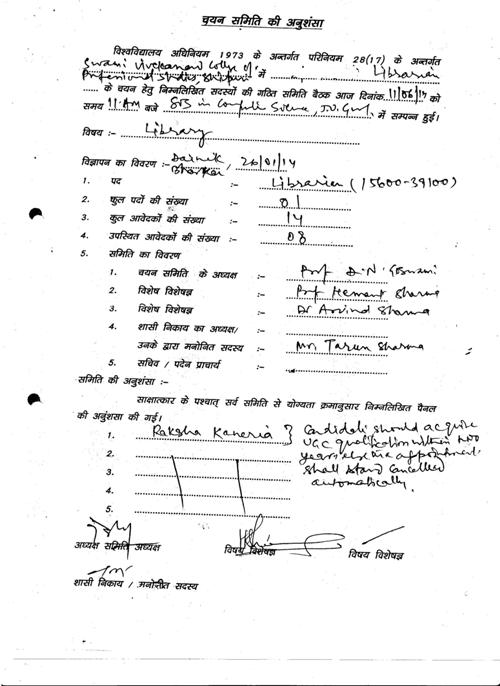 चयन समिति की अनुशंसा
विश्वविद्यालय अधिनियम 1973 के अन्तर्गत परिनियम 28(17) के अन्तर्गत
Swami Vivekanand College of
Professional Studies, Shivpuri में Librarian
के चयन हेतु निम्नलिखित सदस्यों की गठित समिति बैठक आज दिनांक 11/06/14 को
समय 11 AM बजे SOS in Computer Science, J.U. Gwl. में सम्पन्न हुई।
विषय :- Library
विज्ञापन का विवरण :- Dainik Bhaskar, 26/01/14
1. पद :- Librarian (15600-39100)
2. कुल पदों की संख्या :- 01
3. कुल आवेदकों की संख्या :- 14
4. उपस्थित आवेदकों की संख्या :- 08
5. समिति का विवरण
1. चयन समिति के अध्यक्ष :- Prof D.N. Goswami
2. विशेष विशेषज्ञ :- Prof Hemant Sharma
3. विशेष विशेषज्ञ :- Dr Arvind Sharma
4. शासी निकाय का अध्यक्ष/
उनके द्वारा मनोनित सदस्य :- Mr. Tarun Sharma
5. सचिव / पदेन प्राचार्य :-
समिति की अनुशंसा :-
साक्षात्कार के पश्चात् सर्व समिति से योग्यता क्रमानुसार निम्नलिखित पैनल
की अनुशंसा की गई।
1. Raksha Kaneria } Candidate should acquire
2. UGC qualification within two
years else the appointment
3. shall stand cancelled
4. automatically.
5.
अध्यक्ष समिति अध्यक्ष विषय विशेषज्ञ विषय विशेषज्ञ
शासी निकाय / मनोनीत सदस्य